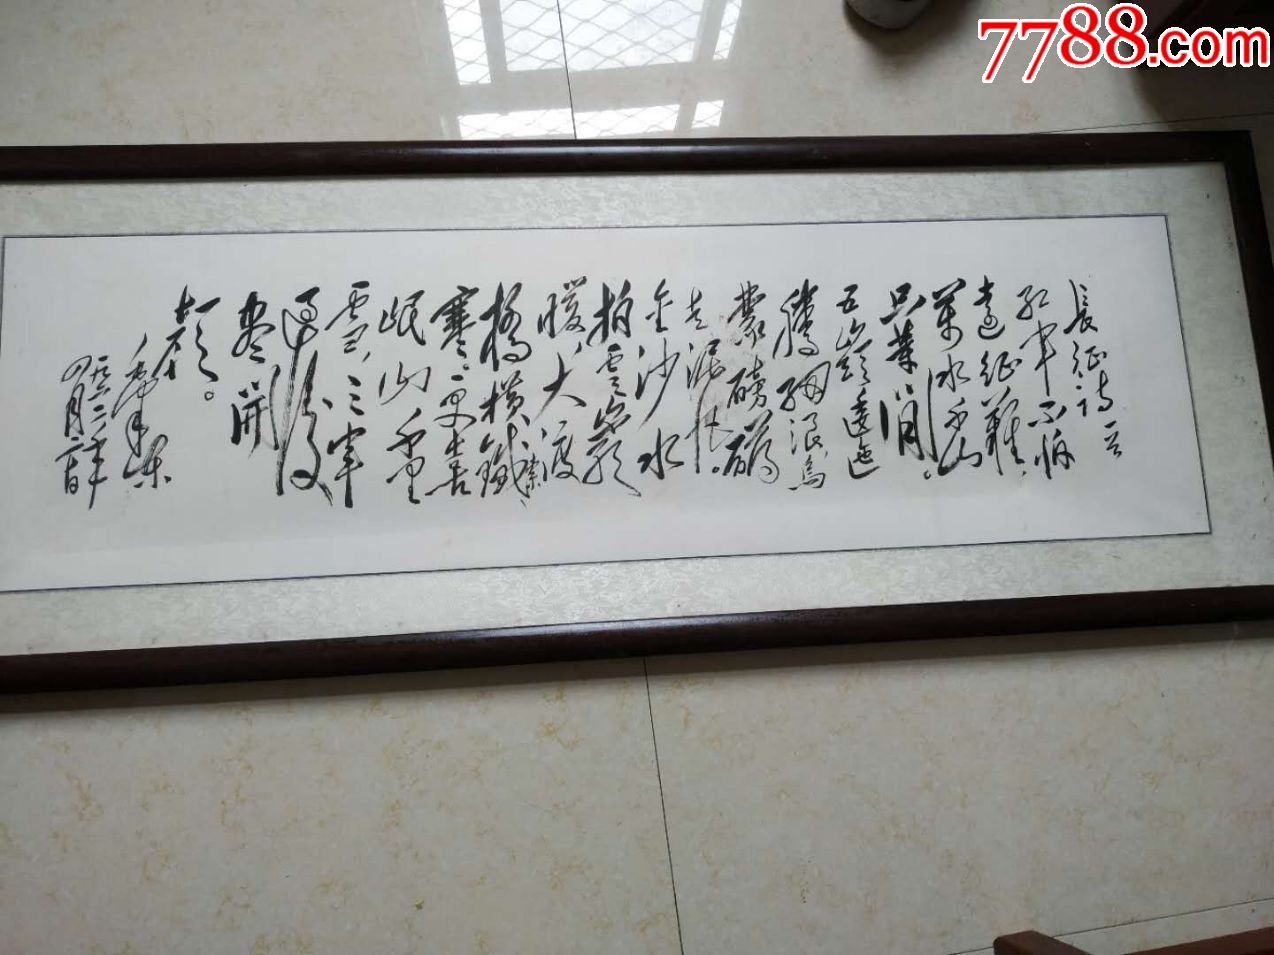 7788.com
長征詩一首
紅軍不怕
遠征難,
萬水千山
只等閒。
五嶺逶迤
騰細浪烏
蒙磅礴
走泥丸。
金沙水
拍雲崖
暖,大渡
橋橫鐵索
寒。更喜
岷山千里
雪,三軍
過後
盡開
顏。
毛澤東
一九六二年
四月二十日